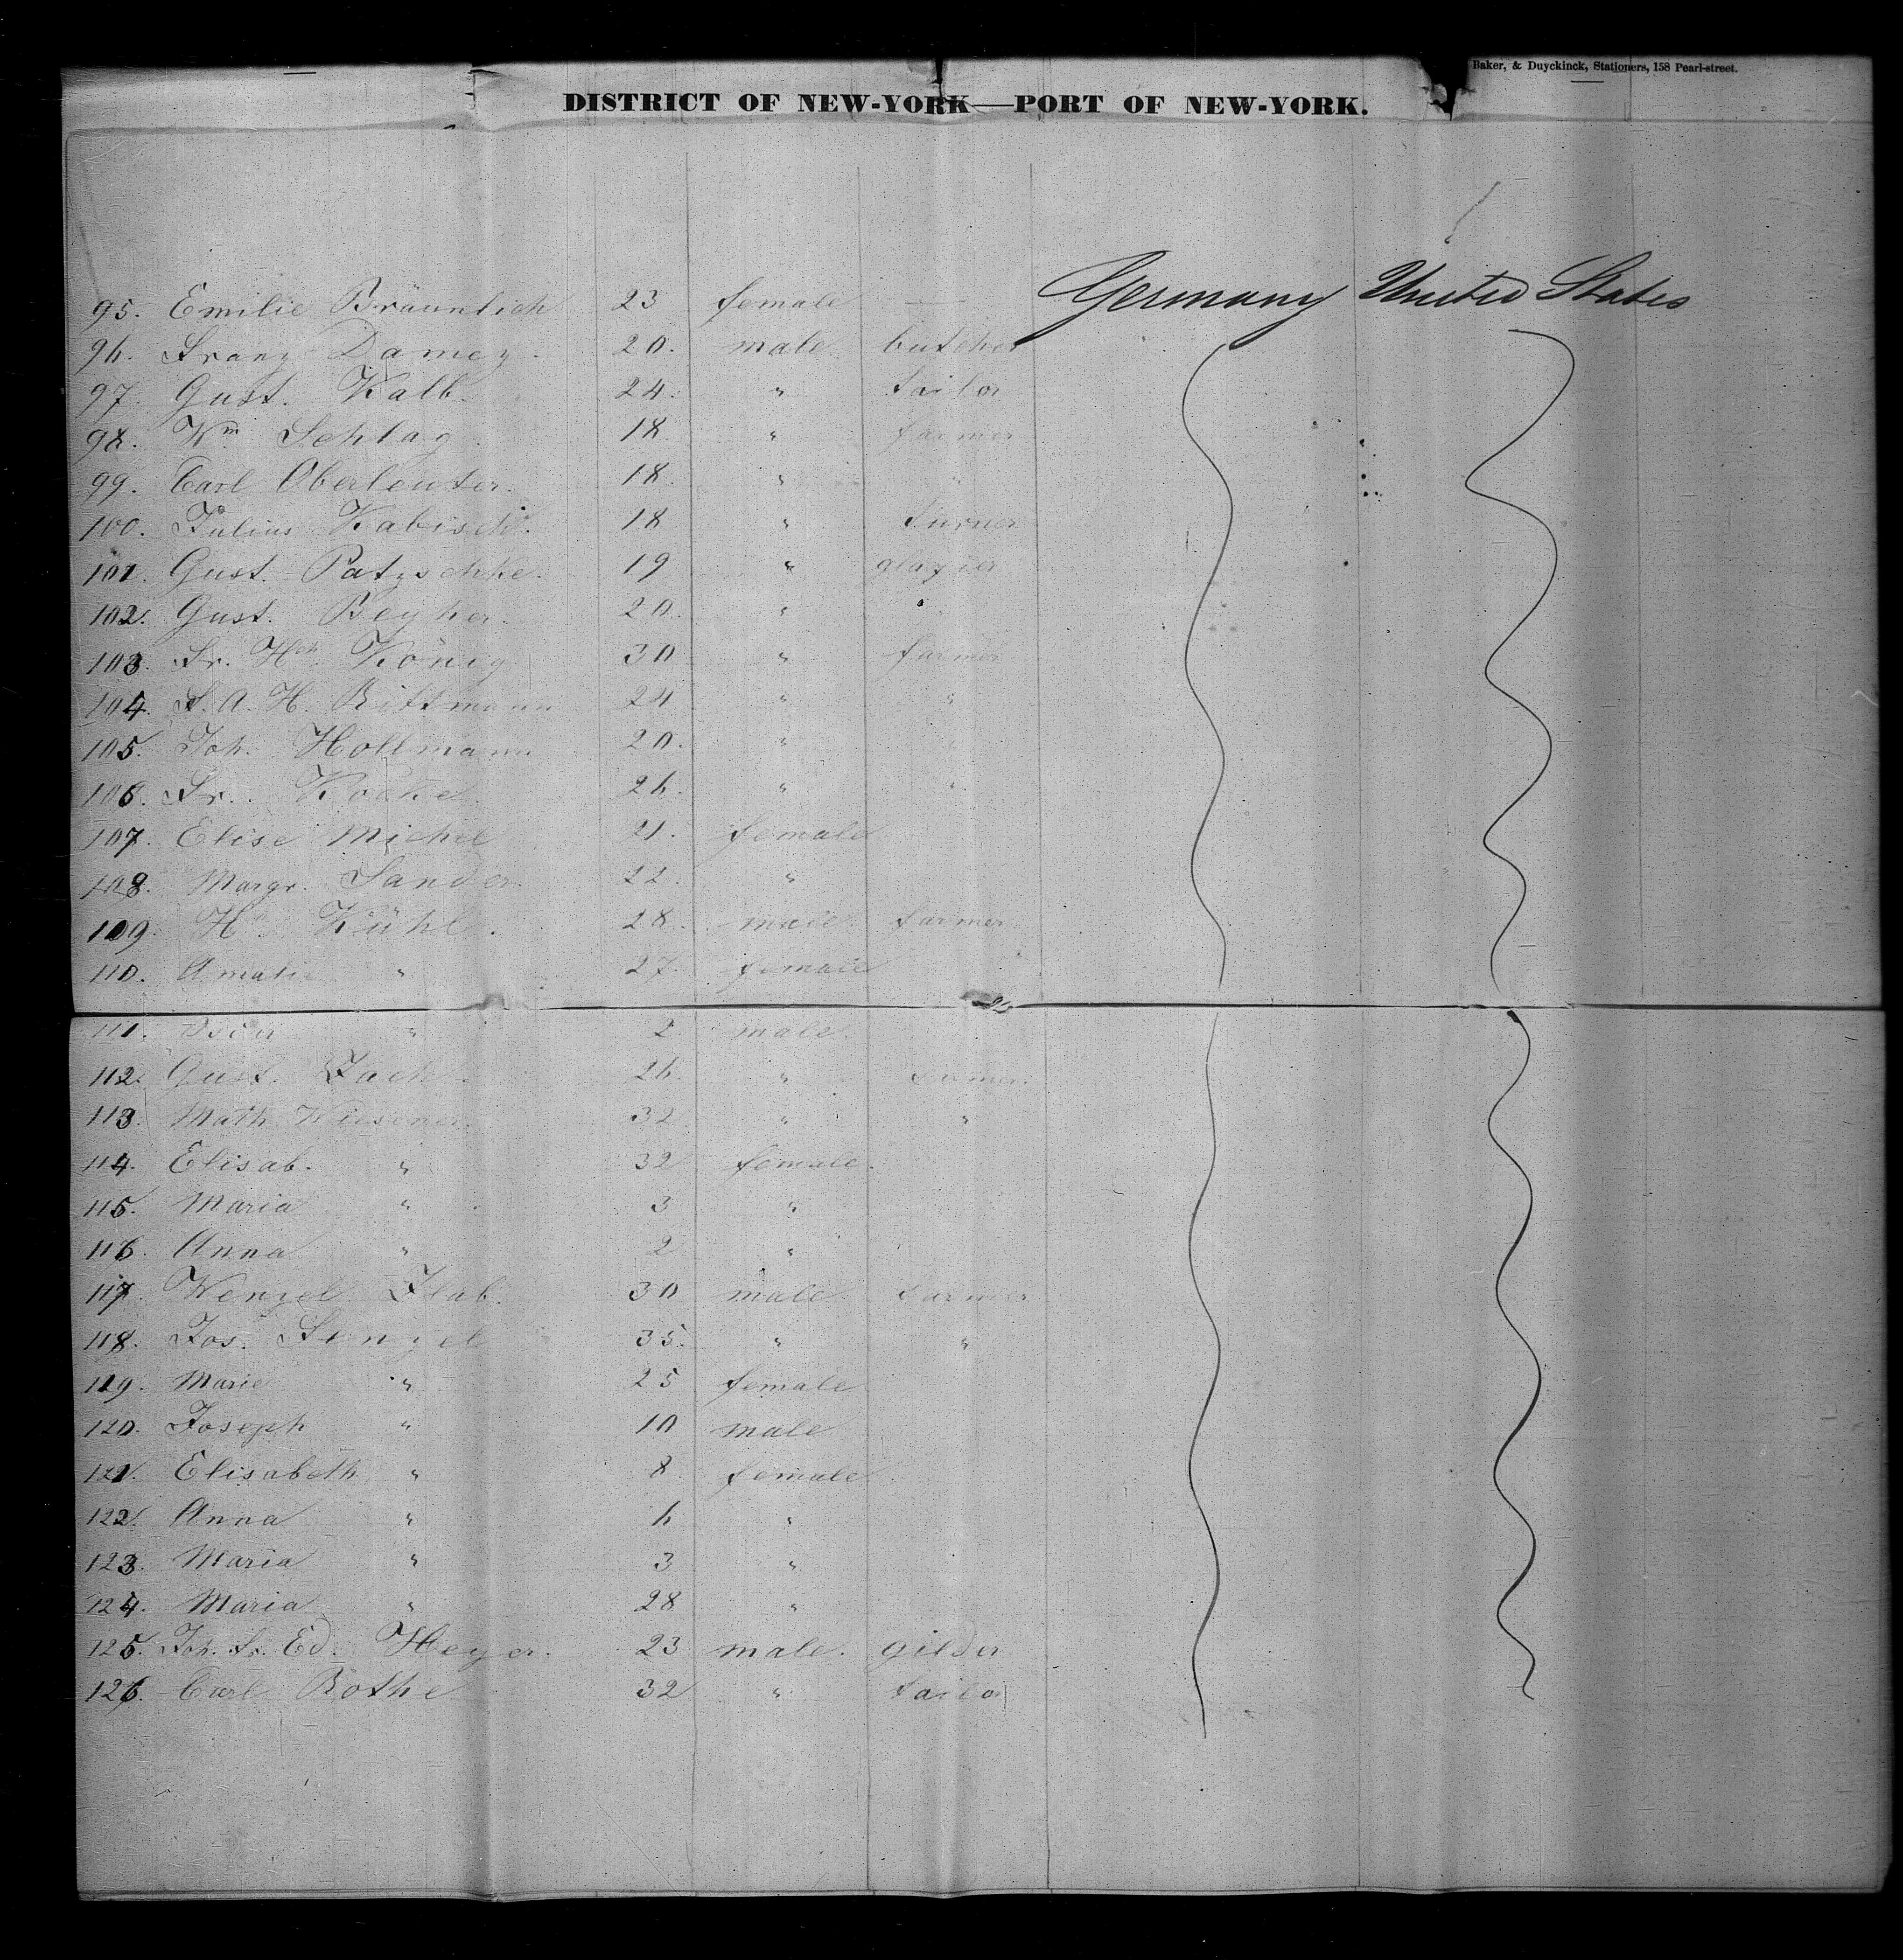 Baker, & Duyckinck, Stationers, 158 Pearl-street.
DISTRICT OF NEW-YORK—PORT OF NEW-YORK.
95. Emilie Bräunlich 23 female — Germany United States
96. Franz Damez. 20. male butcher
97. Gust. Kalb. 24. " tailor
98. Wm Schlag. 18 " farmer
99. Carl Oberleuter. 18. " "
100. Julius Kabisch. 18 " turner
101. Gust. Patzschke. 19 " glazier
102. Gust. Beyher. 20. " "
103. Fr. Hch. König 30 " farmer
104. F. A. H. Rittmann 24 " "
105. Joh. Hollmann 20. " "
106. Fr. Kooke 26. " "
107. Elise Michel 21. female
108. Margr. Sander. 22. "
109. Hh. Kühl. 28. male farmer
110. Amalie " 27. female
111. " 2 male.
112. Gust. Zach. 26. " farmer
113. Math Wiesener. 32 " "
114. Elisab. " 32 female.
115. Maria " 3 "
116. Anna " 2 "
117. Wenzel Flab. 30 male. farmer
118. Jos. Stenzel 35. " "
119. Marie " 25 female
120. Joseph " 10 male
121. Elisabeth " 8. female.
122. Anna " 6 "
123. Maria " 3 "
124. Maria " 28 "
125. Joh. Fr. Ed. Heyer. 23 male. gilder
126. Carl Rothe 32 " tailor